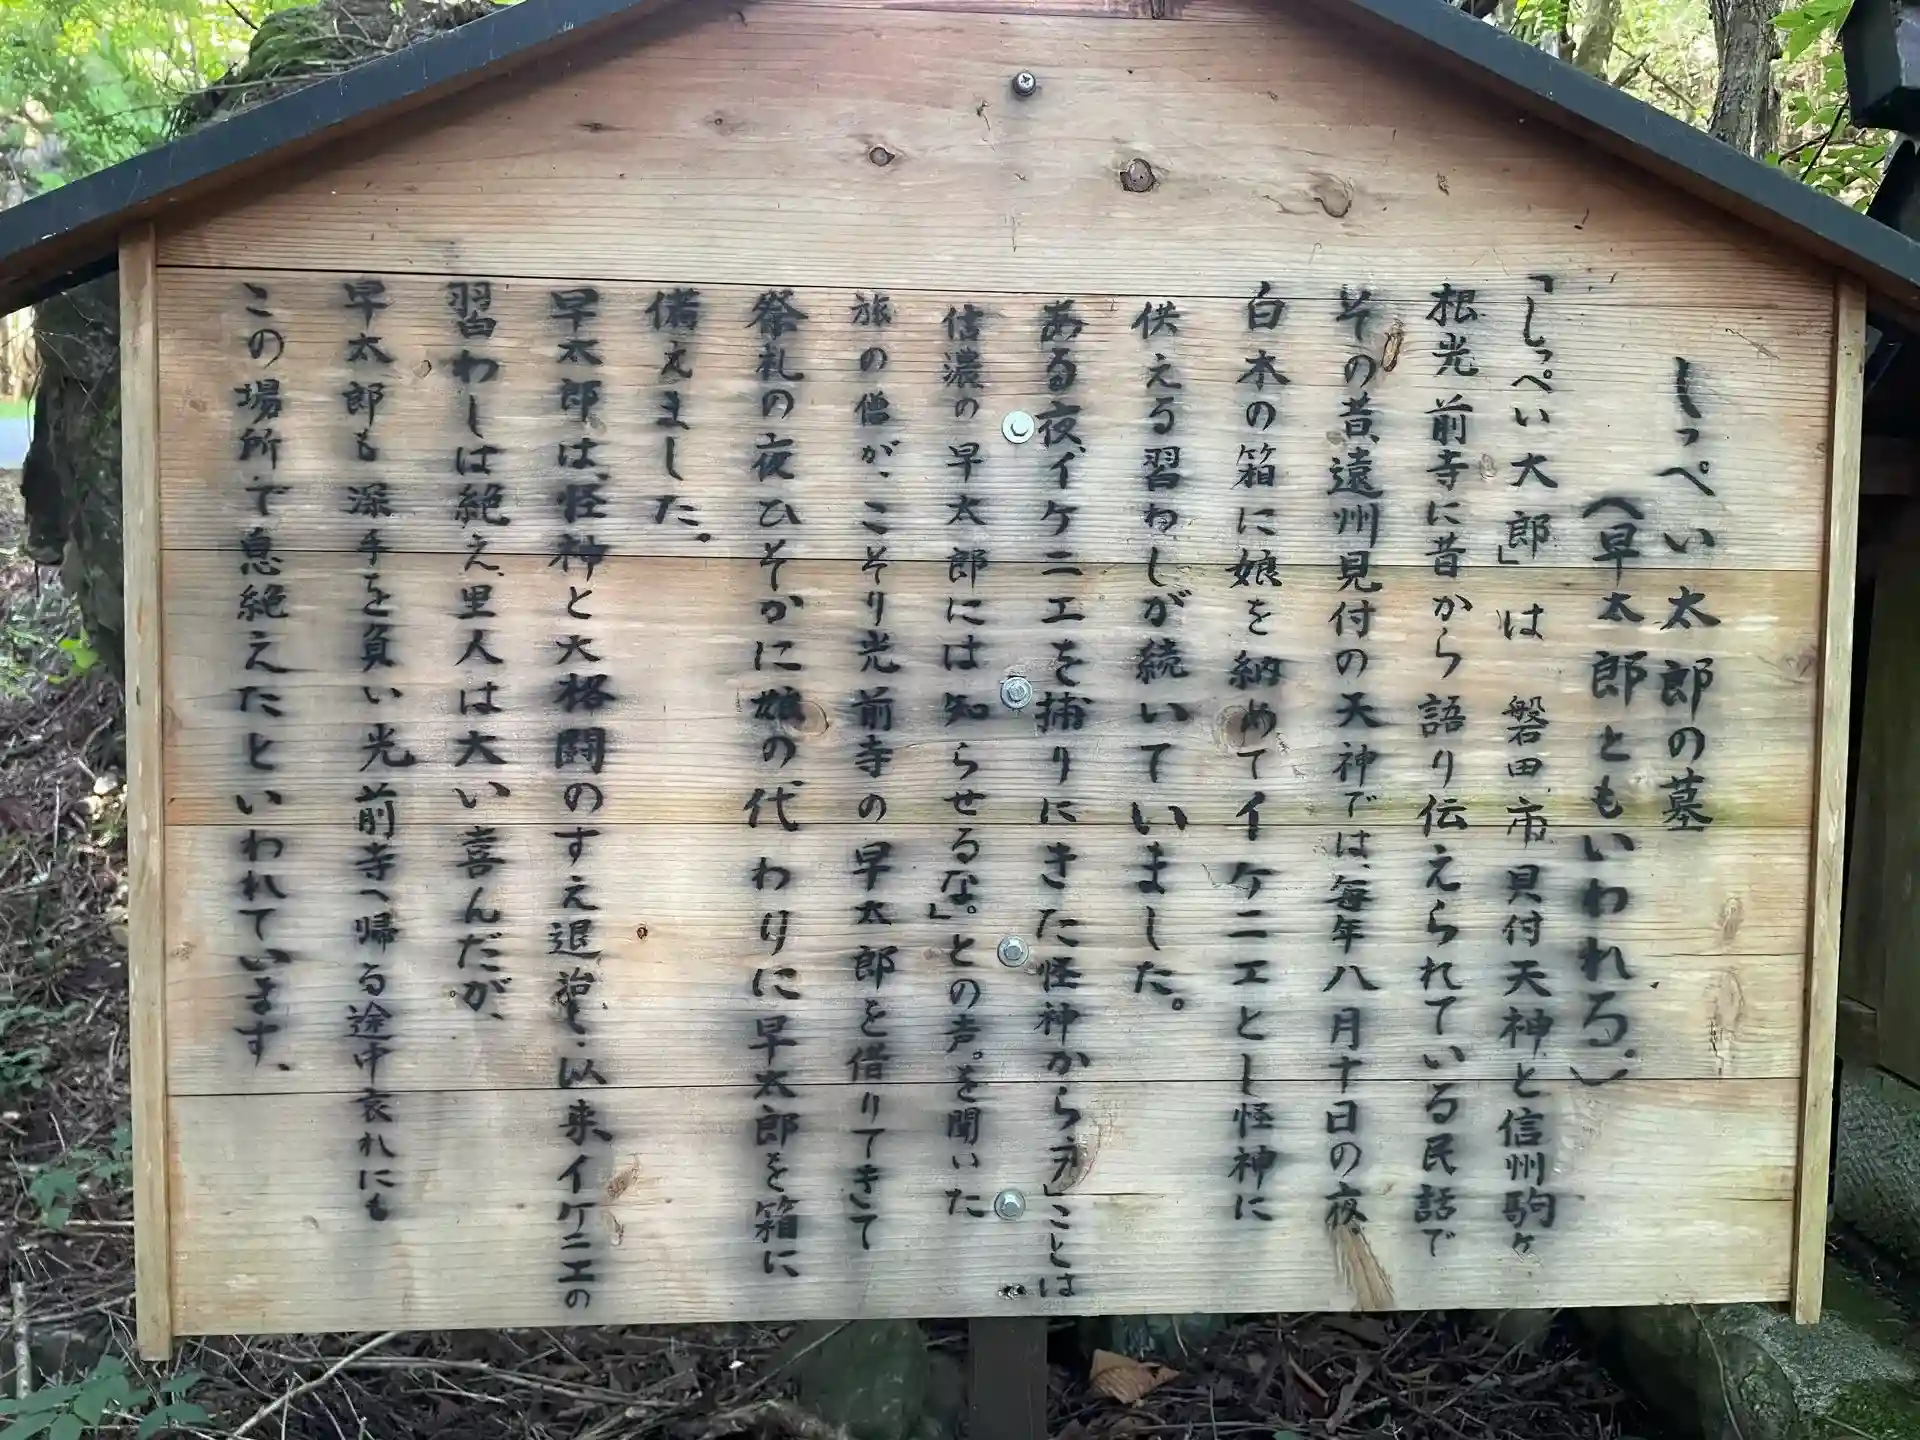 しっぺい太郎の墓
(早太郎ともいわれる)
「しっぺい太郎」は 磐田市見付天神と信州駒ヶ
根光前寺に昔から語り伝えられている民話で
その昔、遠州見付の天神では、毎年八月十日の夜、
白木の箱に娘を納めてイケニエとし怪神に
供える習わしが続いていました。
ある夜、イケニエを捕りにきた怪神から
信濃の早太郎には知らせるな。」との声。を聞いた
旅の僧が、こそり光前寺の早太郎を借りてきて
祭礼の夜ひそかに娘の代わりに早太郎を箱に
備えました。
早太郎は、怪神と大格闘のすえ退治し、以来、イケニエの
習わしは絶え、里人は大い喜んだが、
早太郎も深手を負い光前寺へ帰る途中哀れにも
この場所で息絶えたといわれています、